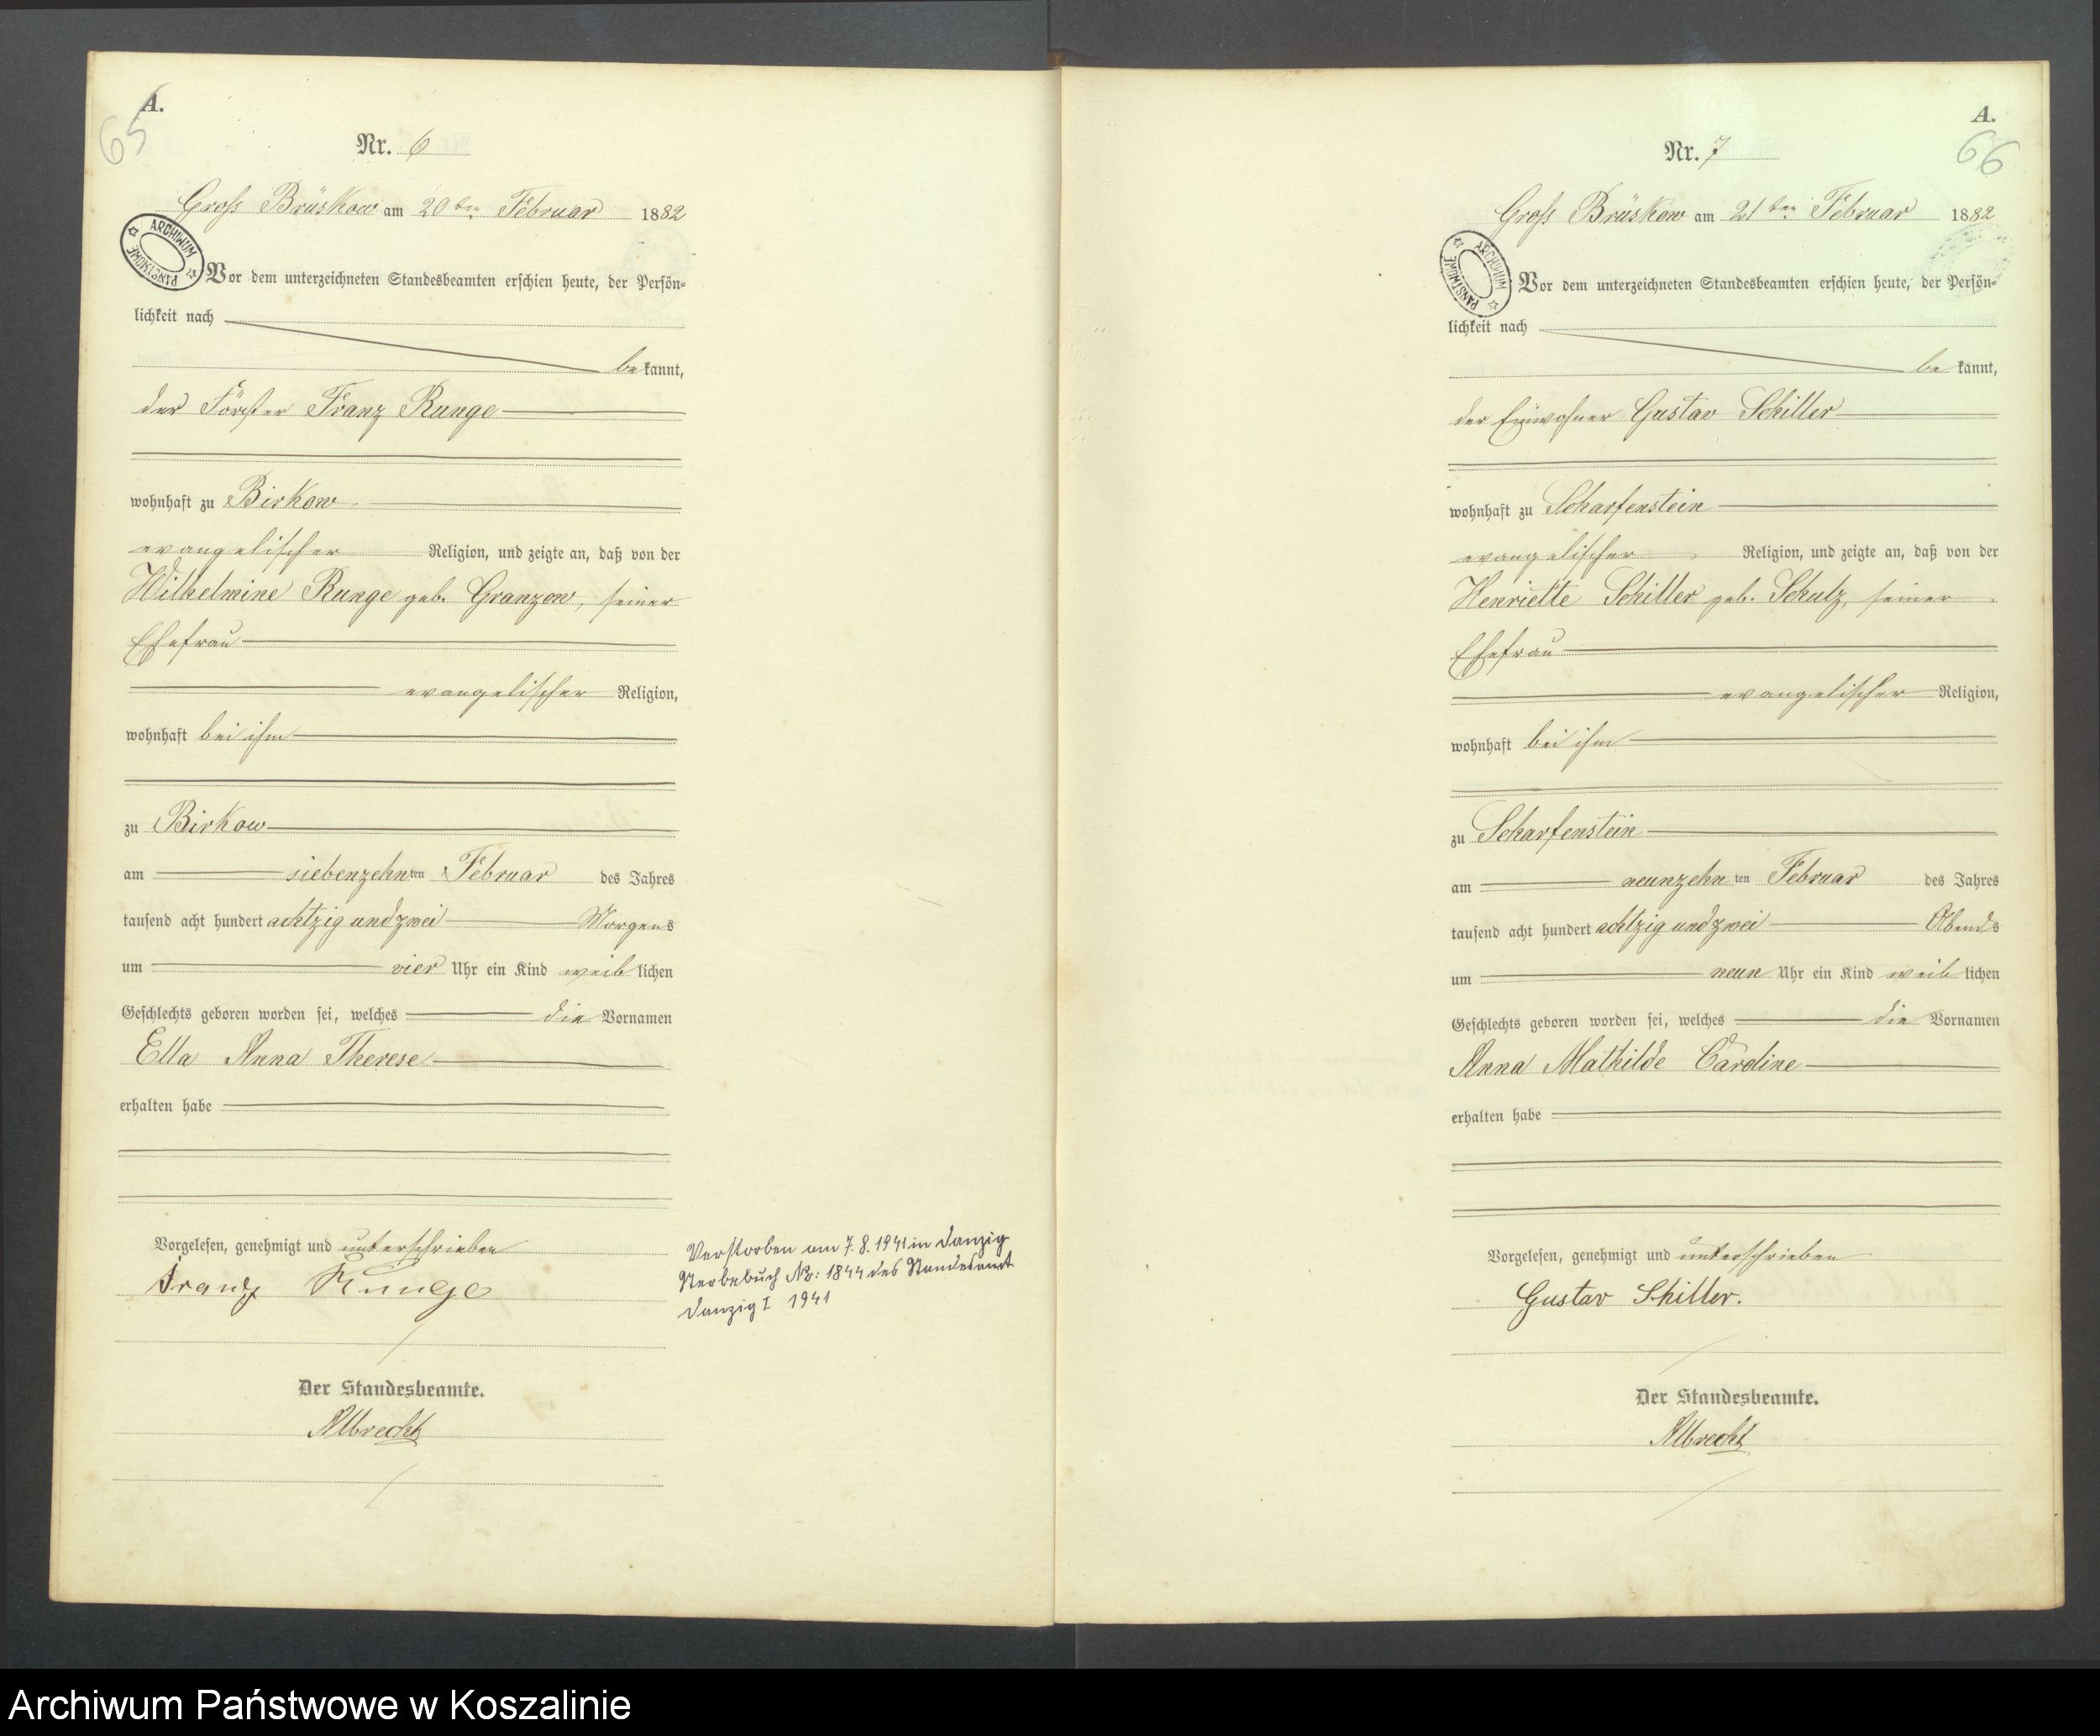 A.
65
Nr. 6
Gross Brüskow am 20ten Februar 1882
ARCHIWUM PAŃSTWOWE
Vor dem unterzeichneten Standesbeamten erschien heute, der Persön-
lichkeit nach
bekannt,
der Förster Franz Runge
wohnhaft zu Birkow
evangelischer Religion, und zeigte an, daß von der
Wilhelmine Runge geb. Granzow, seiner
Ehefrau
evangelischer Religion,
wohnhaft bei ihm
zu Birkow
am siebenzehnten Februar des Jahres
tausend acht hundert achtzig und zwei Morgens
um vier Uhr ein Kind weiblichen
Geschlechts geboren worden sei, welches die Vornamen
Ella Anna Therese
erhalten habe
Vorgelesen, genehmigt und unterschrieben
Franz Runge
Verstorben am 7.8.1941 in Danzig
Sterbebuch No: 1844 des Standesamt
Danzig I 1941
Der Standesbeamte.
Albrecht
A.
66
Nr. 7
Gross Brüskow am 21ten Februar 1882
ARCHIWUM PAŃSTWOWE
Vor dem unterzeichneten Standesbeamten erschien heute, der Persön-
lichkeit nach
bekannt,
der Einwohner Gustav Schiller
wohnhaft zu Scharfenstein
evangelischer Religion, und zeigte an, daß von der
Henriette Schiller geb. Schulz, seiner
Ehefrau
evangelischer Religion,
wohnhaft bei ihm
zu Scharfenstein
am neunzehnten Februar des Jahres
tausend acht hundert achtzig und zwei Abends
um neun Uhr ein Kind weiblichen
Geschlechts geboren worden sei, welches die Vornamen
Anna Mathilde Caroline
erhalten habe
Vorgelesen, genehmigt und unterschrieben
Gustav Schiller.
Der Standesbeamte.
Albrecht
Archiwum Państwowe w Koszalinie